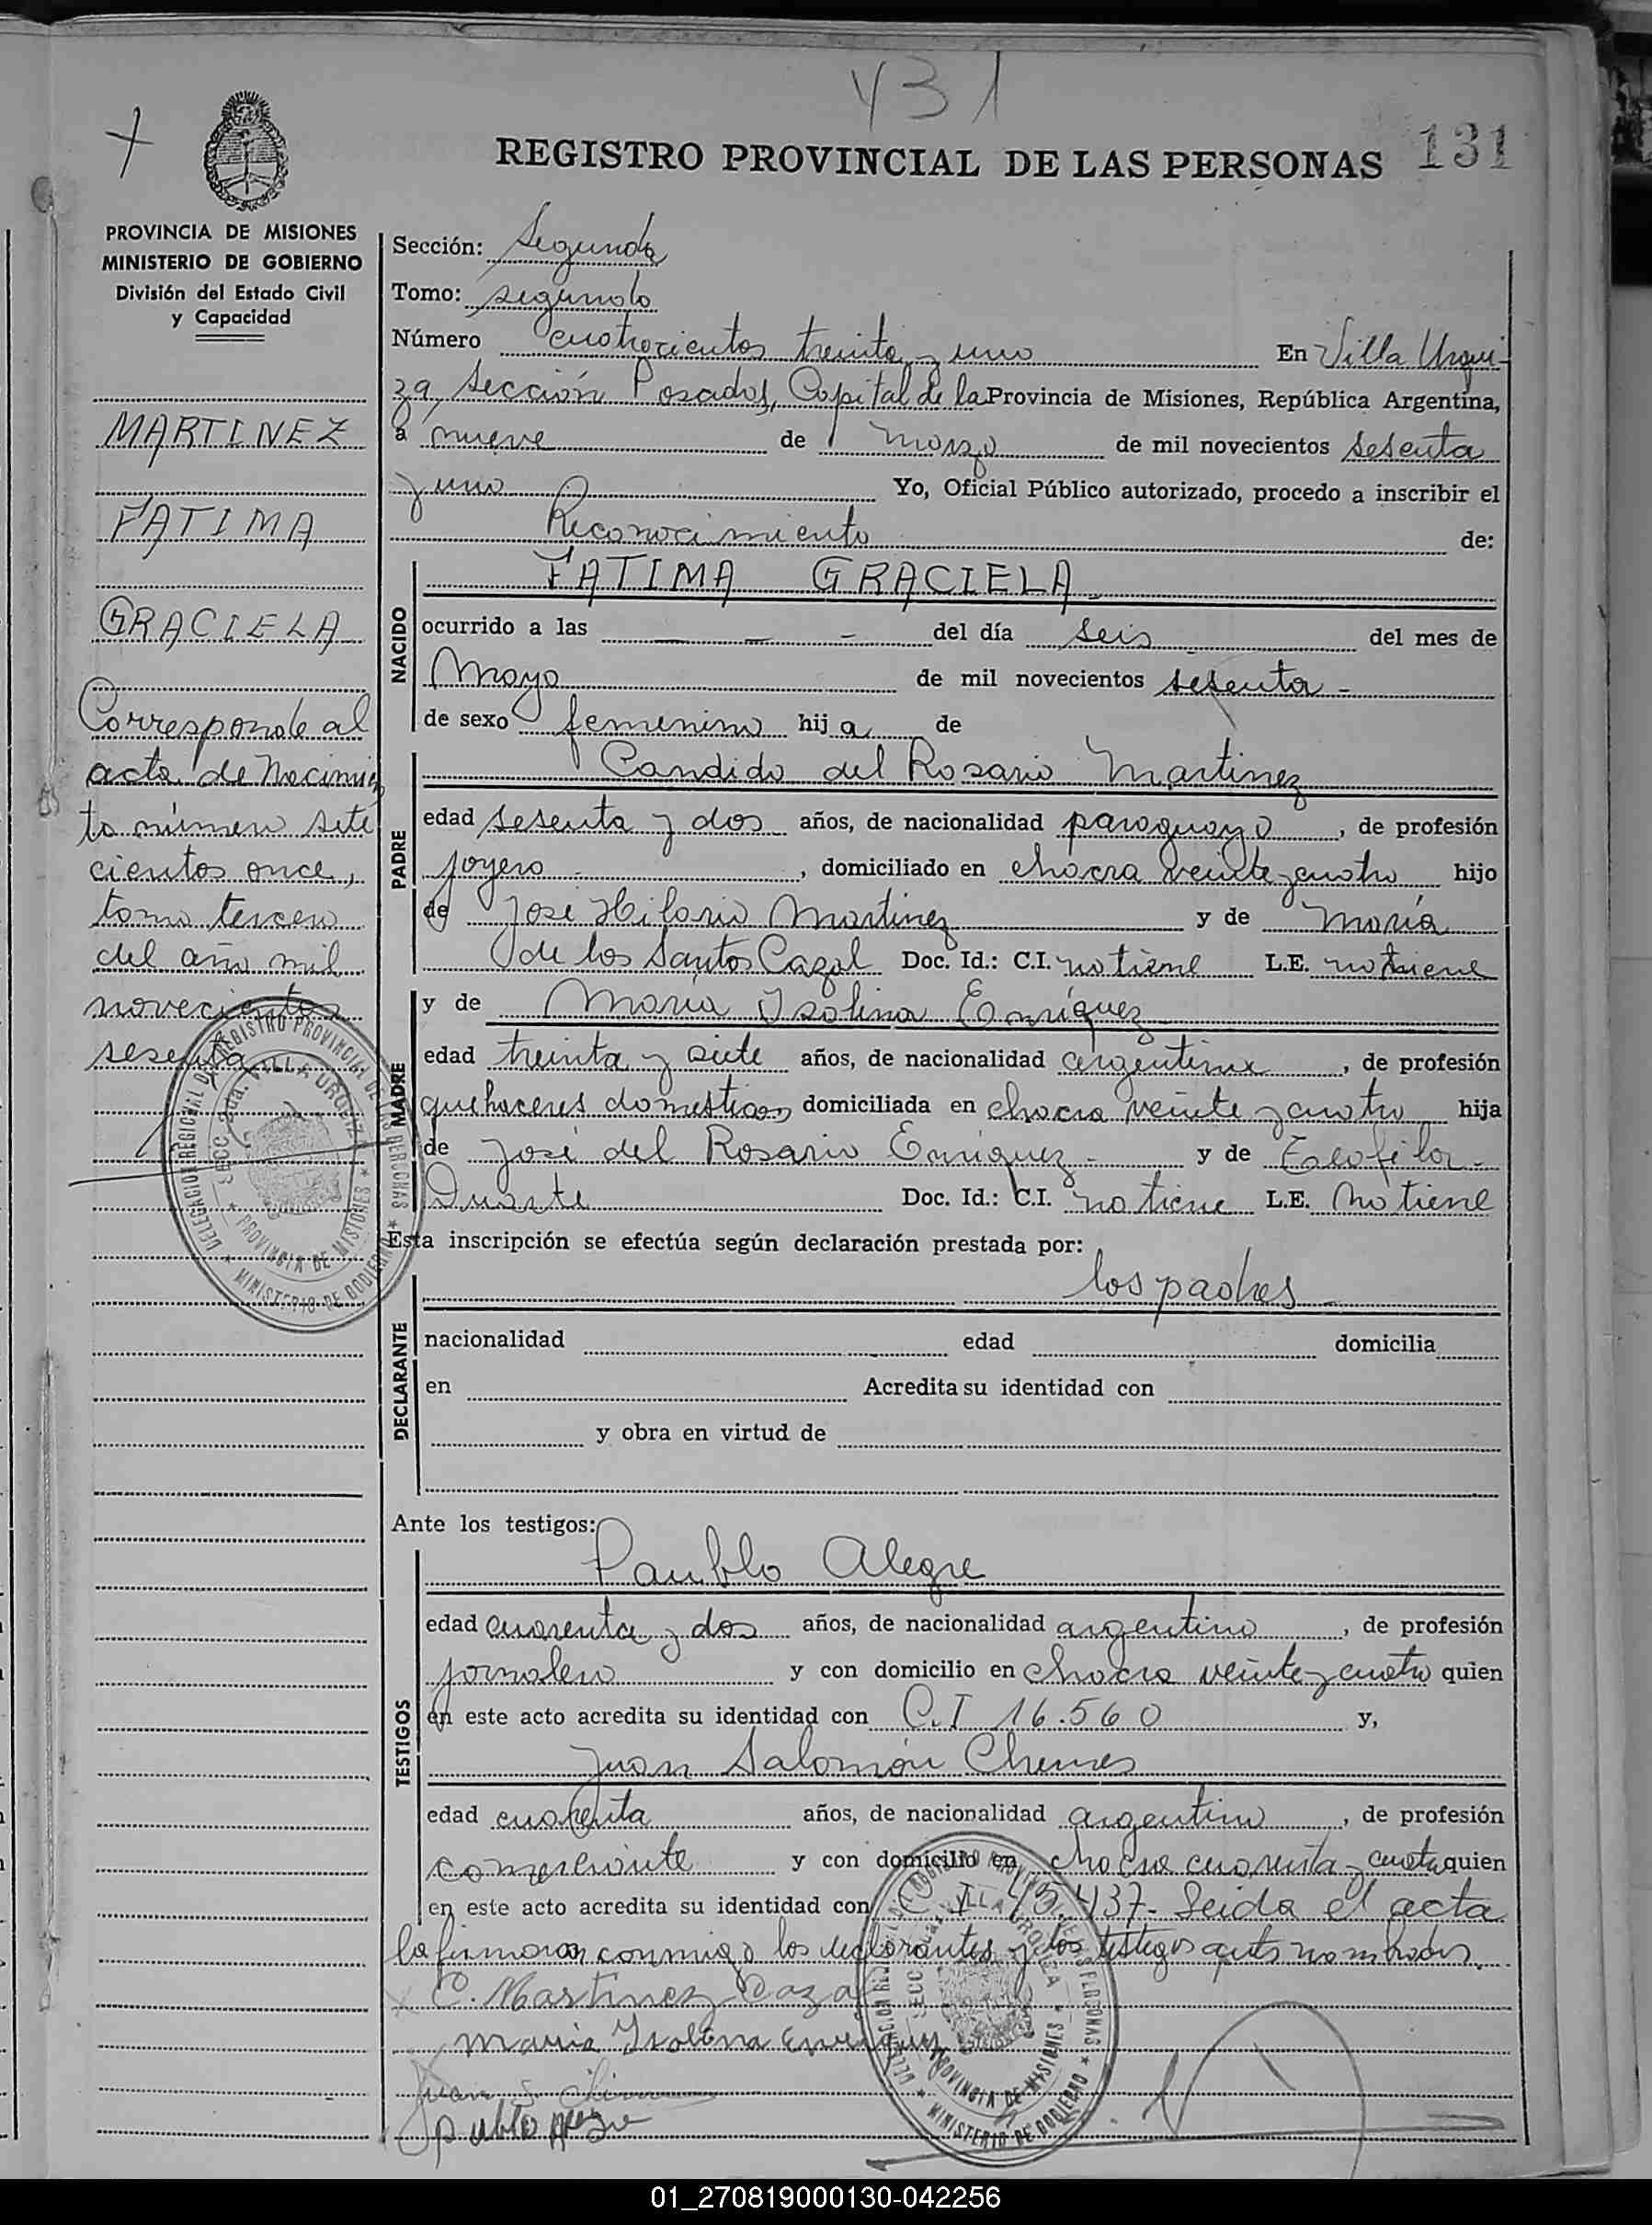 431
131
REGISTRO PROVINCIAL DE LAS PERSONAS
PROVINCIA DE MISIONES
MINISTERIO DE GOBIERNO
División del Estado Civil
y Capacidad
MARTINEZ
FATIMA
GRACIELA
Corresponde al
acta de Nacimien
to número sete
cientos once,
tomo tercero
del año mil
novecientos
sesenta
Sección: Segunda
Tomo: segundo
Número cuatrocientos treinta y uno En Villa Urqui-
za, Sección Posadas, Capital de la Provincia de Misiones, República Argentina,
a nueve de marzo de mil novecientos sesenta
y uno Yo, Oficial Público autorizado, procedo a inscribir el
Reconocimiento de:
NACIDO
FATIMA GRACIELA
ocurrido a las — — — del día seis del mes de
Mayo de mil novecientos sesenta -
de sexo femenino hija de
PADRE
Candido del Rosario Martinez
edad sesenta y dos años, de nacionalidad paraguayo, de profesión
joyero, domiciliado en chacra veinte y cuatro hijo
de José Hilario Martinez y de María
de los Santos Cazal Doc. Id.: C.I. no tiene L.E. no tiene
MADRE
y de María Isolina Enríquez
edad treinta y siete años, de nacionalidad argentina, de profesión
quehaceres domesticos, domiciliada en chacra veinte y cuatro hija
de José del Rosario Enríquez - y de
Duarte Doc. Id.: C.I. no tiene L.E. No tiene
Esta inscripción se efectúa según declaración prestada por:
DECLARANTE
los padres
nacionalidad edad domicilia
en Acredita su identidad con
y obra en virtud de
Ante los testigos:
TESTIGOS
Paublo Alegre
edad cuarenta y dos años, de nacionalidad argentino, de profesión
jornalero y con domicilio en chacra veinte y cuatro quien
en este acto acredita su identidad con C.I 16.560 y,
Juan Salomón Chemes
edad cuarenta años, de nacionalidad argentino, de profesión
comerciante y con domicilio en chacra cuarenta y cuatro quien
en este acto acredita su identidad con C I 45.437- Leida el acta
la firmaron conmigo los declarantes y los testigos antes nombrados.
C. Martinez Cazal
Maria Isolina Enriquez
Juan S.
Pablo Alegre
DELEGACION REGIONAL DEL REGISTRO PROVINCIAL DE LAS PERSONAS
SECC. 2da. VILLA URQUIZA
PROVINCIA DE MISIONES
MINISTERIO DE GOBIERNO
01_270819000130-042256